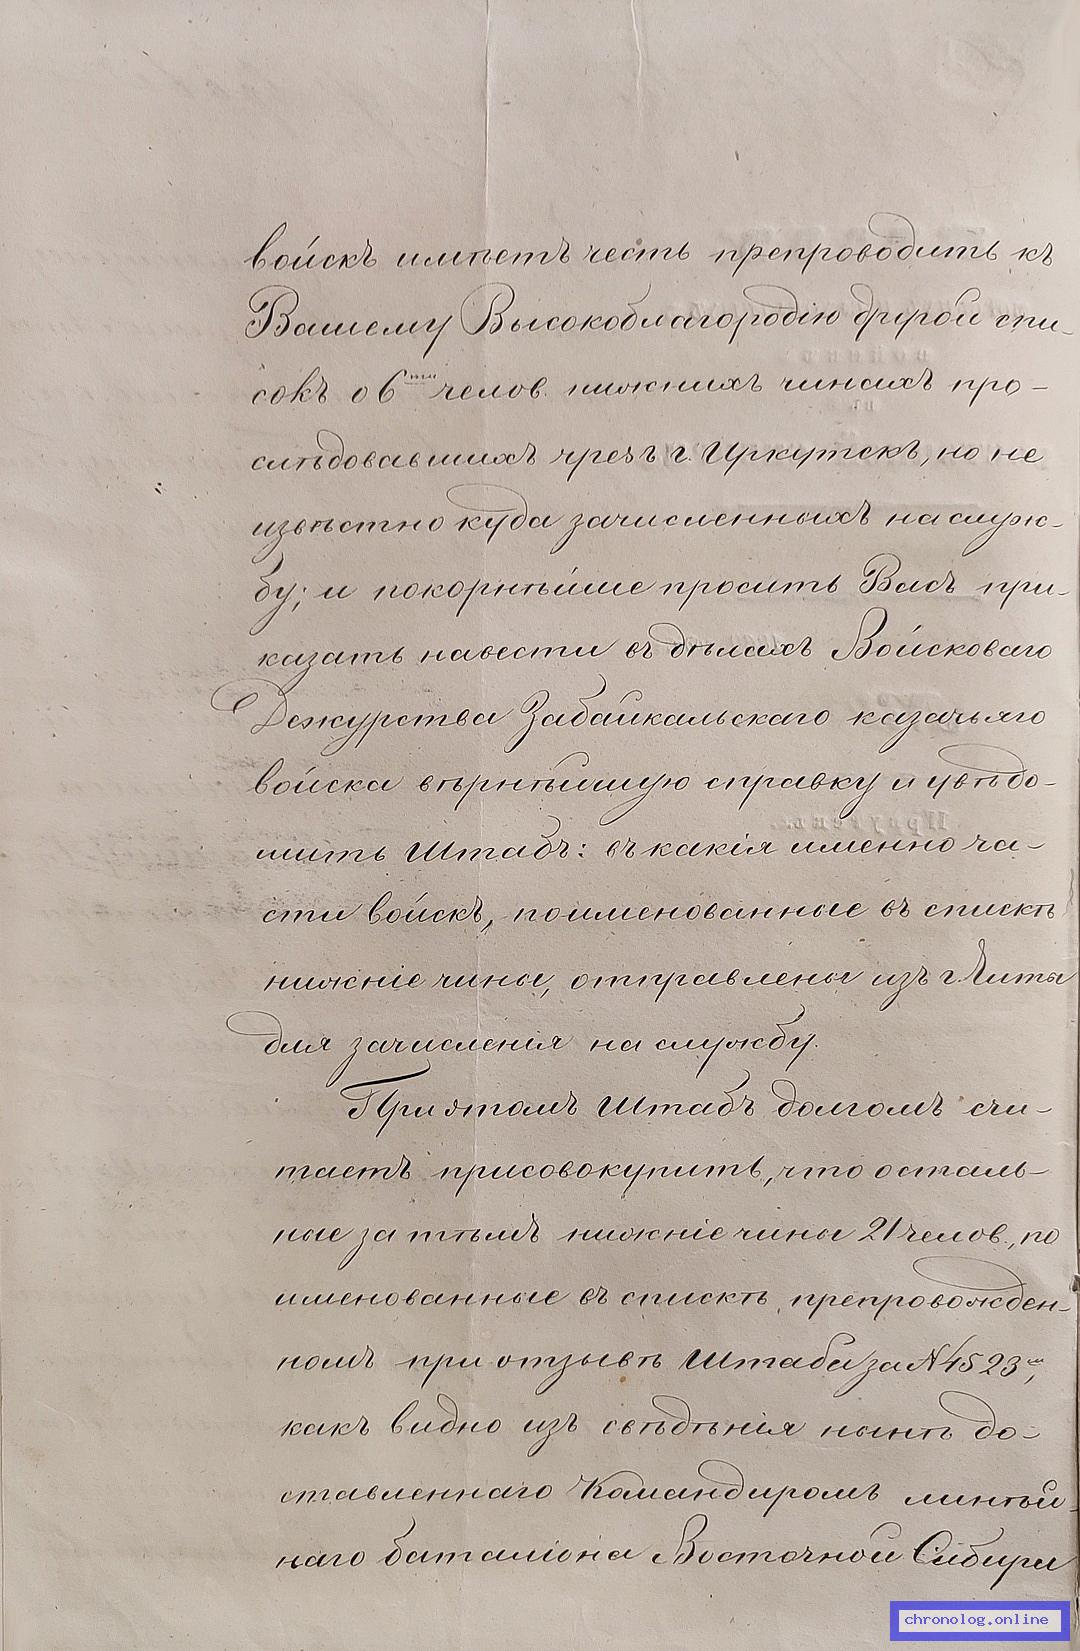 войскъ имѣетъ честь препроводить къ
Вашему Высокоблагородію другой спи-
сокъ о 6ти челов. нижнихъ чинахъ про-
слѣдовавшихъ чрезъ г. Иркутскъ, но не
извѣстно куда зачисленныхъ на служ-
бу; и покорнѣйше просить Васъ при-
казать навести въ дѣлахъ Войсковаго
Дежурства Забайкальскаго казачьяго
войска вѣрнѣйшую справку и увѣдо-
мить Штабъ: въ какія именно ча-
сти войскъ, поименованные въ спискѣ
нижніе чины, отправлены изъ г. Читы
для зачисленія на службу.
При этомъ Штабъ долгомъ счи-
таетъ присовокупить, что осталь-
ные за тѣмъ нижніе чины 21 челов., по
именованные въ спискѣ, препровожден-
номъ при отзывѣ Штаба за № 4523мъ,
какъ видно изъ свѣдѣнія нынѣ до-
ставленнаго Командиромъ линѣй-
наго баталіона Восточной Сибири
chronolog.online